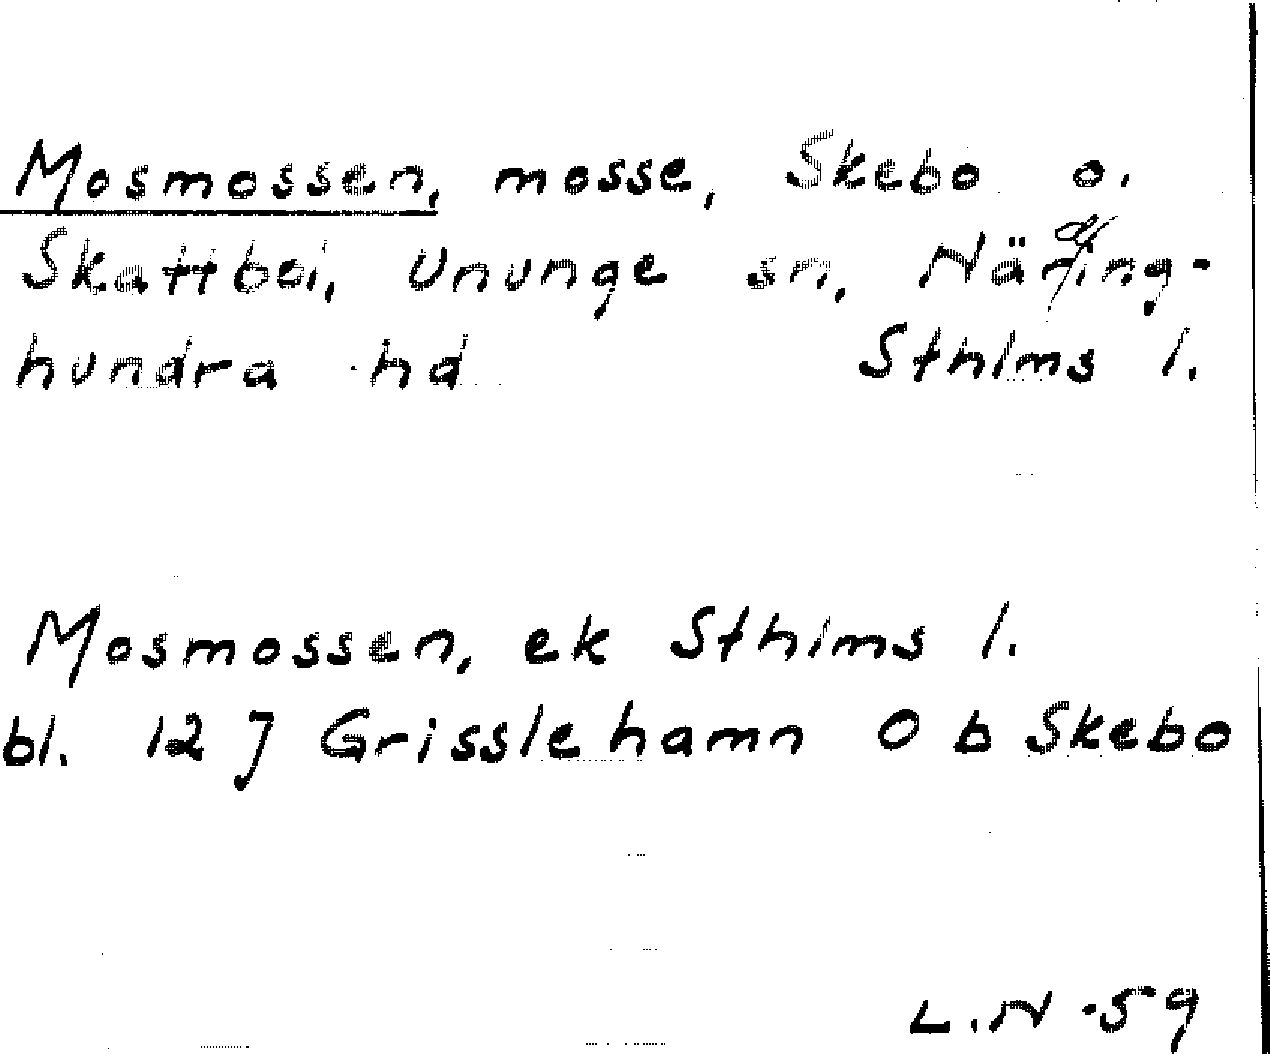 Mosmossen, mosse, Skebo o.
Skattboi, Ununge sn, Näring-
hundra hd Sthlms l.
Mosmossen, ek Sthlms l.
bl. 12 J Grisslehamn O b Skebo
L.N -59